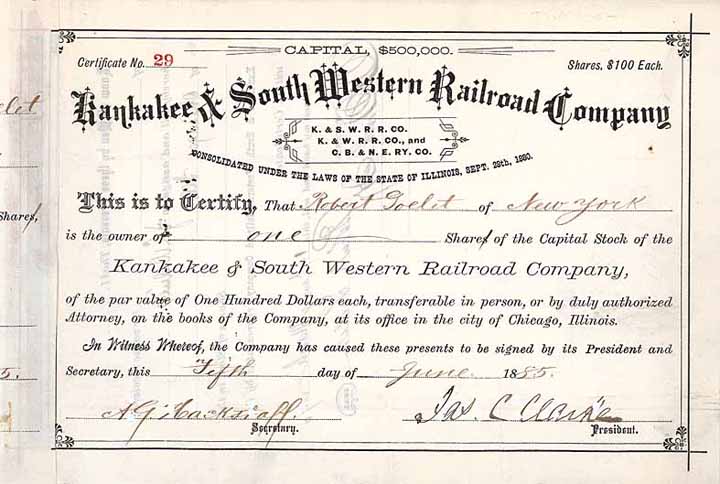 CAPITAL, $500,000.
Certificate No. 29
Shares, $100 Each.
Kankakee & South Western Railroad Company
K. & S. W. R. R. CO.
K. & W. R. R. CO., and
C. B. & N. E. RY. CO.
CONSOLIDATED UNDER THE LAWS OF THE STATE OF ILLINOIS, SEPT. 29th, 1880.
This is to Certify, That Robert Goelet of New York
is the owner of one Share/ of the Capital Stock of the
Kankakee & South Western Railroad Company,
of the par value of One Hundred Dollars each, transferable in person, or by duly authorized
Attorney, on the books of the Company, at its office in the city of Chicago, Illinois.
In Witness Whereof, the Company has caused these presents to be signed by its President and
Secretary, this Fifth day of June 1885.
A.G. Hackstaff. Jas. C Clarke
Secretary. President.
elet
Shares,
5.